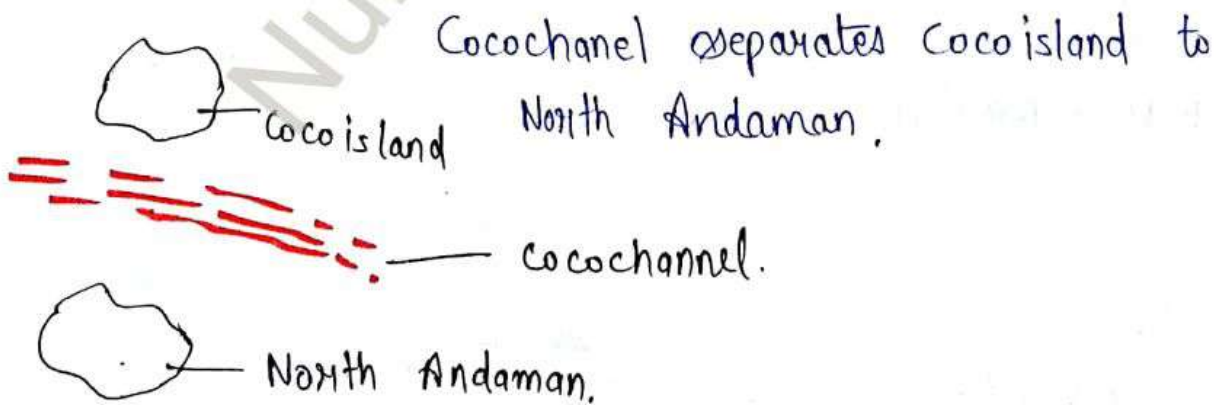 Cocochanel separates Coco island to
North Andaman.
Coco island
Cocochannel.
North Andaman.